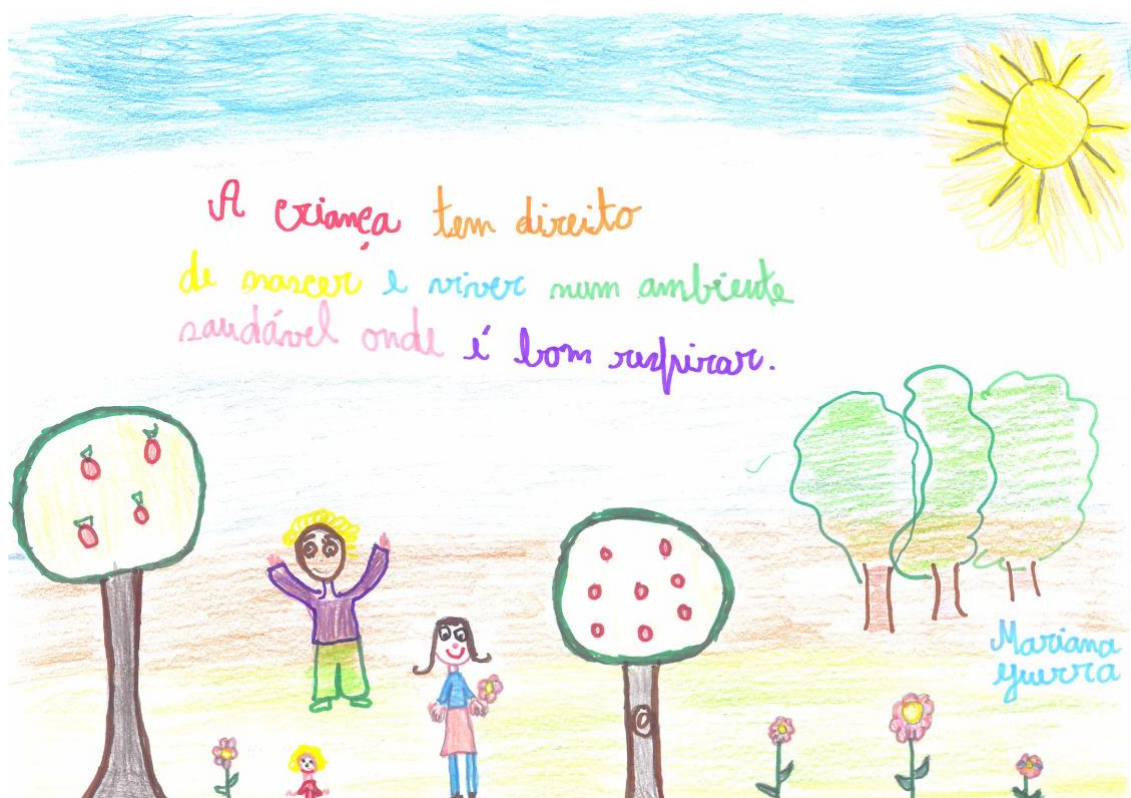 A criança tem direito
de nascer e viver num ambiente
saudável onde é bom respirar.
Mariana
Guerra